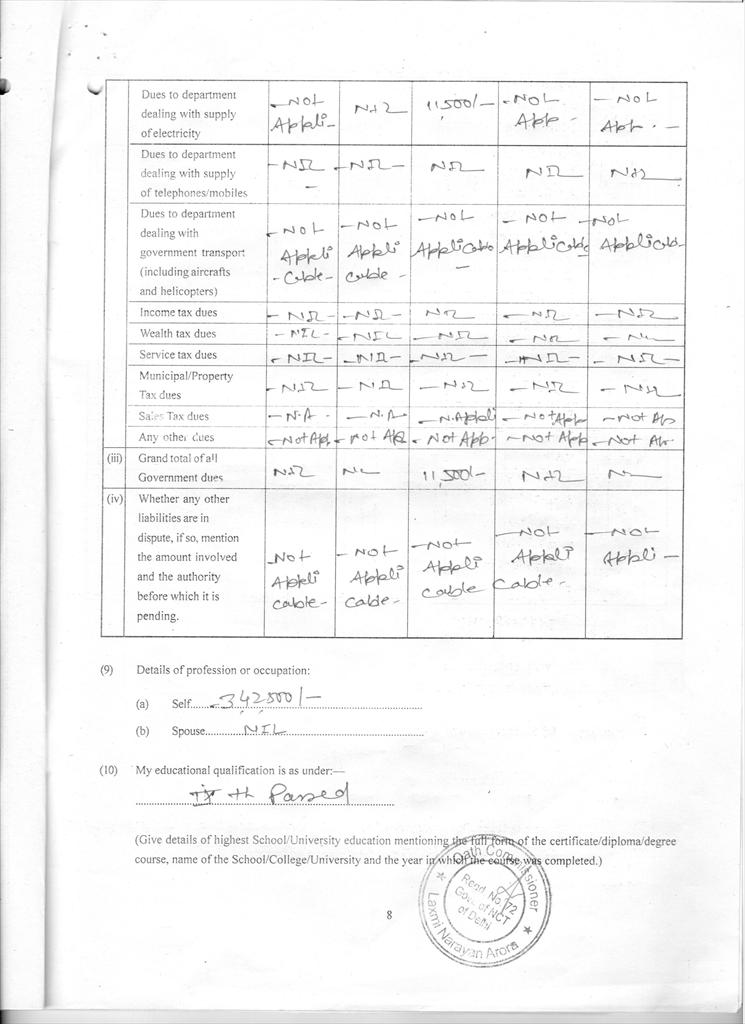 Dues to department dealing with supply of electricity | -Not Appli- | NIL | 11,500/- | -Not App - | - Not App. -
Dues to department dealing with supply of telephones/mobiles | -NIL- | -NIL- | NIL | NIL | NIL
Dues to department dealing with government transport (including aircrafts and helicopters) | - Not Appli - Cable - | - Not Appli cable - | - Not Applicable - | - Not Applicable | - Not Applicable -
Income tax dues | - NIL - | - NIL - | NIL | - NIL | - NIL
Wealth tax dues | - NIL - | - NIL | - NIL | - NIL | - NIL
Service tax dues | - NIL - | - NIL - | - NIL - | - NIL - | - NIL -
Municipal/Property Tax dues | - NIL | - NIL | - NIL | - NIL | - NIL
Sales Tax dues | - N.A - | - N.A | - N.Appli | - Not App | - Not Ap
Any other dues | - Not App. | - Not App | - Not App - | - Not App | - Not Ap.
(iii) Grand total of all Government dues | NIL | NIL | 11,500/- | NIL | NIL
(iv) Whether any other liabilities are in dispute, if so, mention the amount involved and the authority before which it is pending. | -Not Appli cable - | - Not Appli cable - | - Not Appli cable | - Not Appli Cable - | - Not Appli -
(9) Details of profession or occupation:
(a) Self 342500/-
(b) Spouse NIL
(10) My educational qualification is as under:—
th Passed
(Give details of highest School/University education mentioning the full form of the certificate/diploma/degree
course, name of the School/College/University and the year in which the course was completed.)
Oath Commissioner
Regd. No. 172
Govt. of NCT
of Delhi
Laxmi Narayan Arora
8